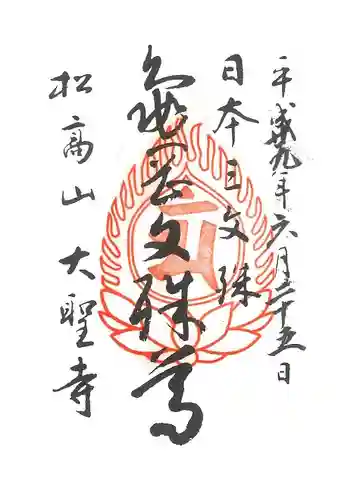 平成廿九年六月二十五日
日本三文殊
亀岡文殊尊
松高山大聖寺